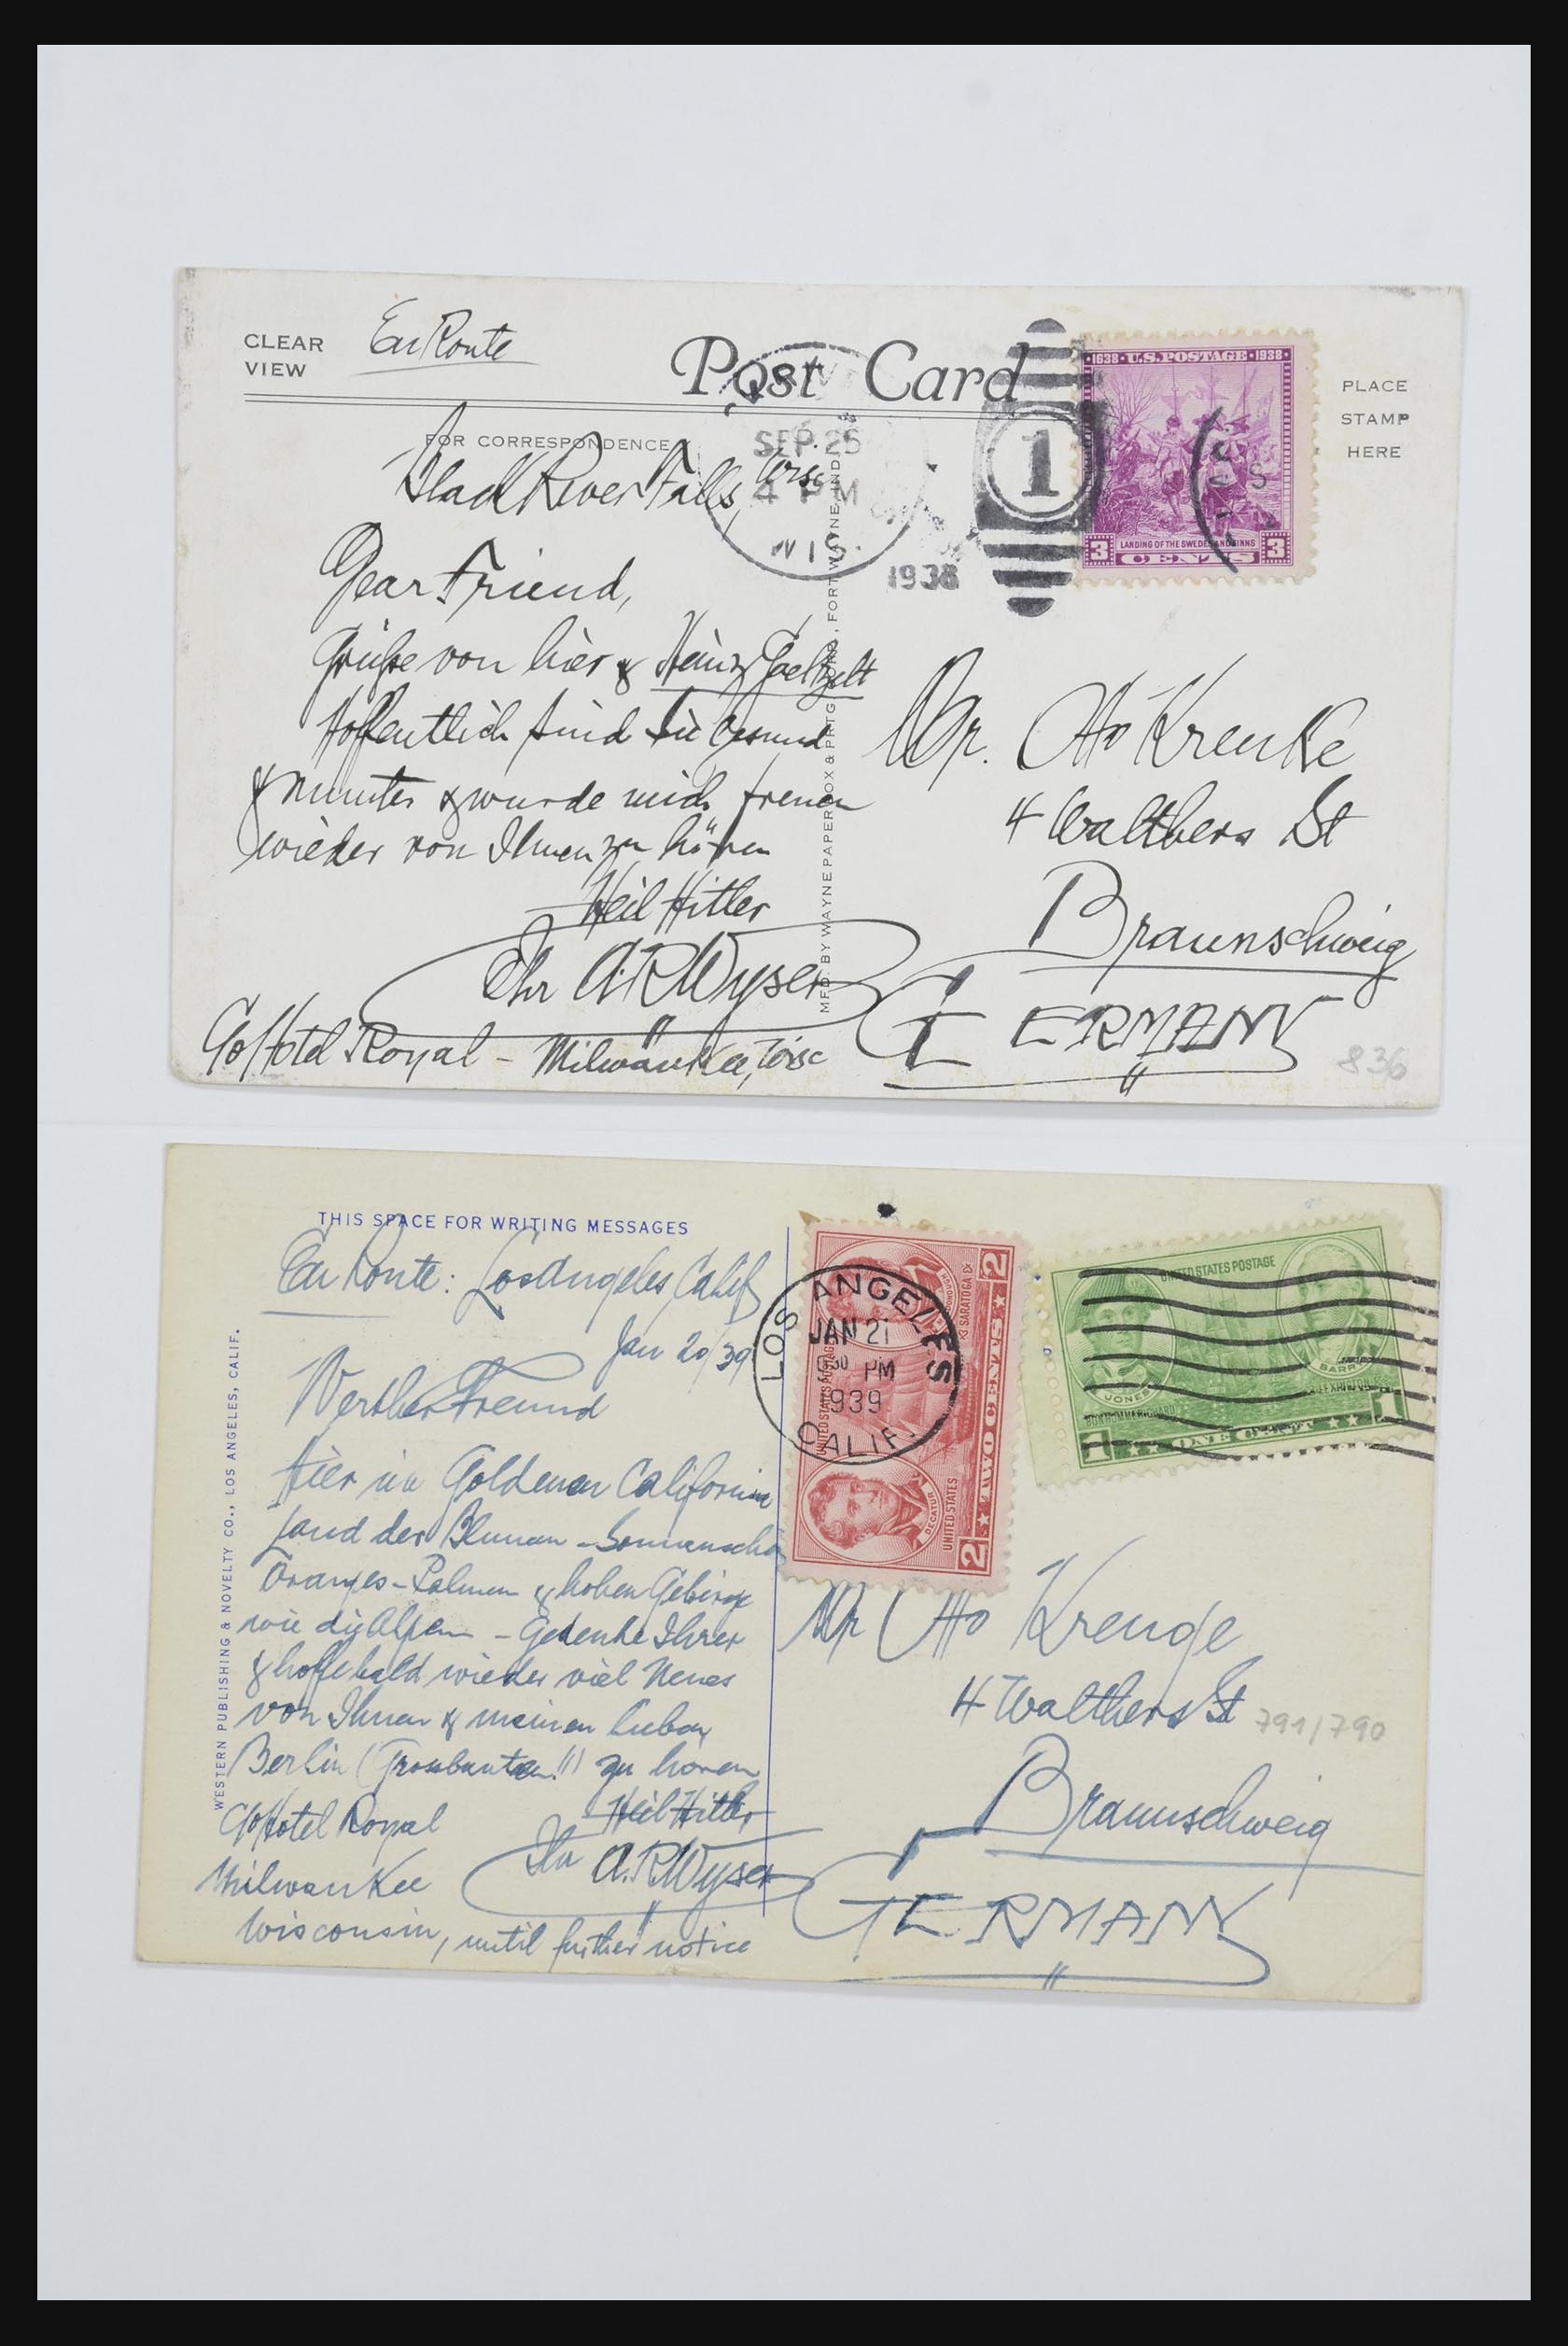 CLEAR
VIEW
En Route
Post Card
PLACE
STAMP
HERE
FOR CORRESPONDENCE
SEP 26
4 PM
WIS.
1938
1
1638 · U.S. POSTAGE · 1938
LANDING OF THE SWEDES AND FINNS
3 CENTS 3
Black River Falls, Wisc
Dear Friend,
Grüße von hier & Heinz
Hoffentlich sind Sie Gesund
& munter & wurde mich freuen
wieder von Ihnen zu hören
Heil Hitler
Ihr A.R. Wyser
C/o Hotel Royal - Milwaukee, Wisc
MFD. BY WAYNE PAPER BOX & PRTG CORP., FORT WAYNE, IND.
Mr. Otto Krenke
4 Walthers St
Braunschweig
GERMANY
836
THIS SPACE FOR WRITING MESSAGES
WESTERN PUBLISHING & NOVELTY CO., LOS ANGELES, CALIF.
En Route: Los Angeles, Calif
Jan 20/39
Werther Freund
Hier im Goldenen California
Land der Blumen - Sonnenschein
Oranges - Palmen & hohen Gebirge
wie die Alpen - Gedenke Ihrer
& hoffe bald wieder viel Neues
von Ihnen & meinen lieben
Berlin ( !!) zu horen
Heil Hitler
Ihr A.R. Wyser
C/o Hotel Royal
Milwaukee
Wisconsin, until further notice
LOS ANGELES
JAN 21
PM
1939
CALIF.
UNITED STATES POSTAGE
SARATOGA
DECATUR
2 TWO CENTS 2
UNITED STATES POSTAGE
JONES
BARRY
BON HOMME RICHARD
LEXINGTON
1 ONE CENT 1
Mr Otto Krenge
4 Walthers St
791/790
Braunschweig
GERMANY